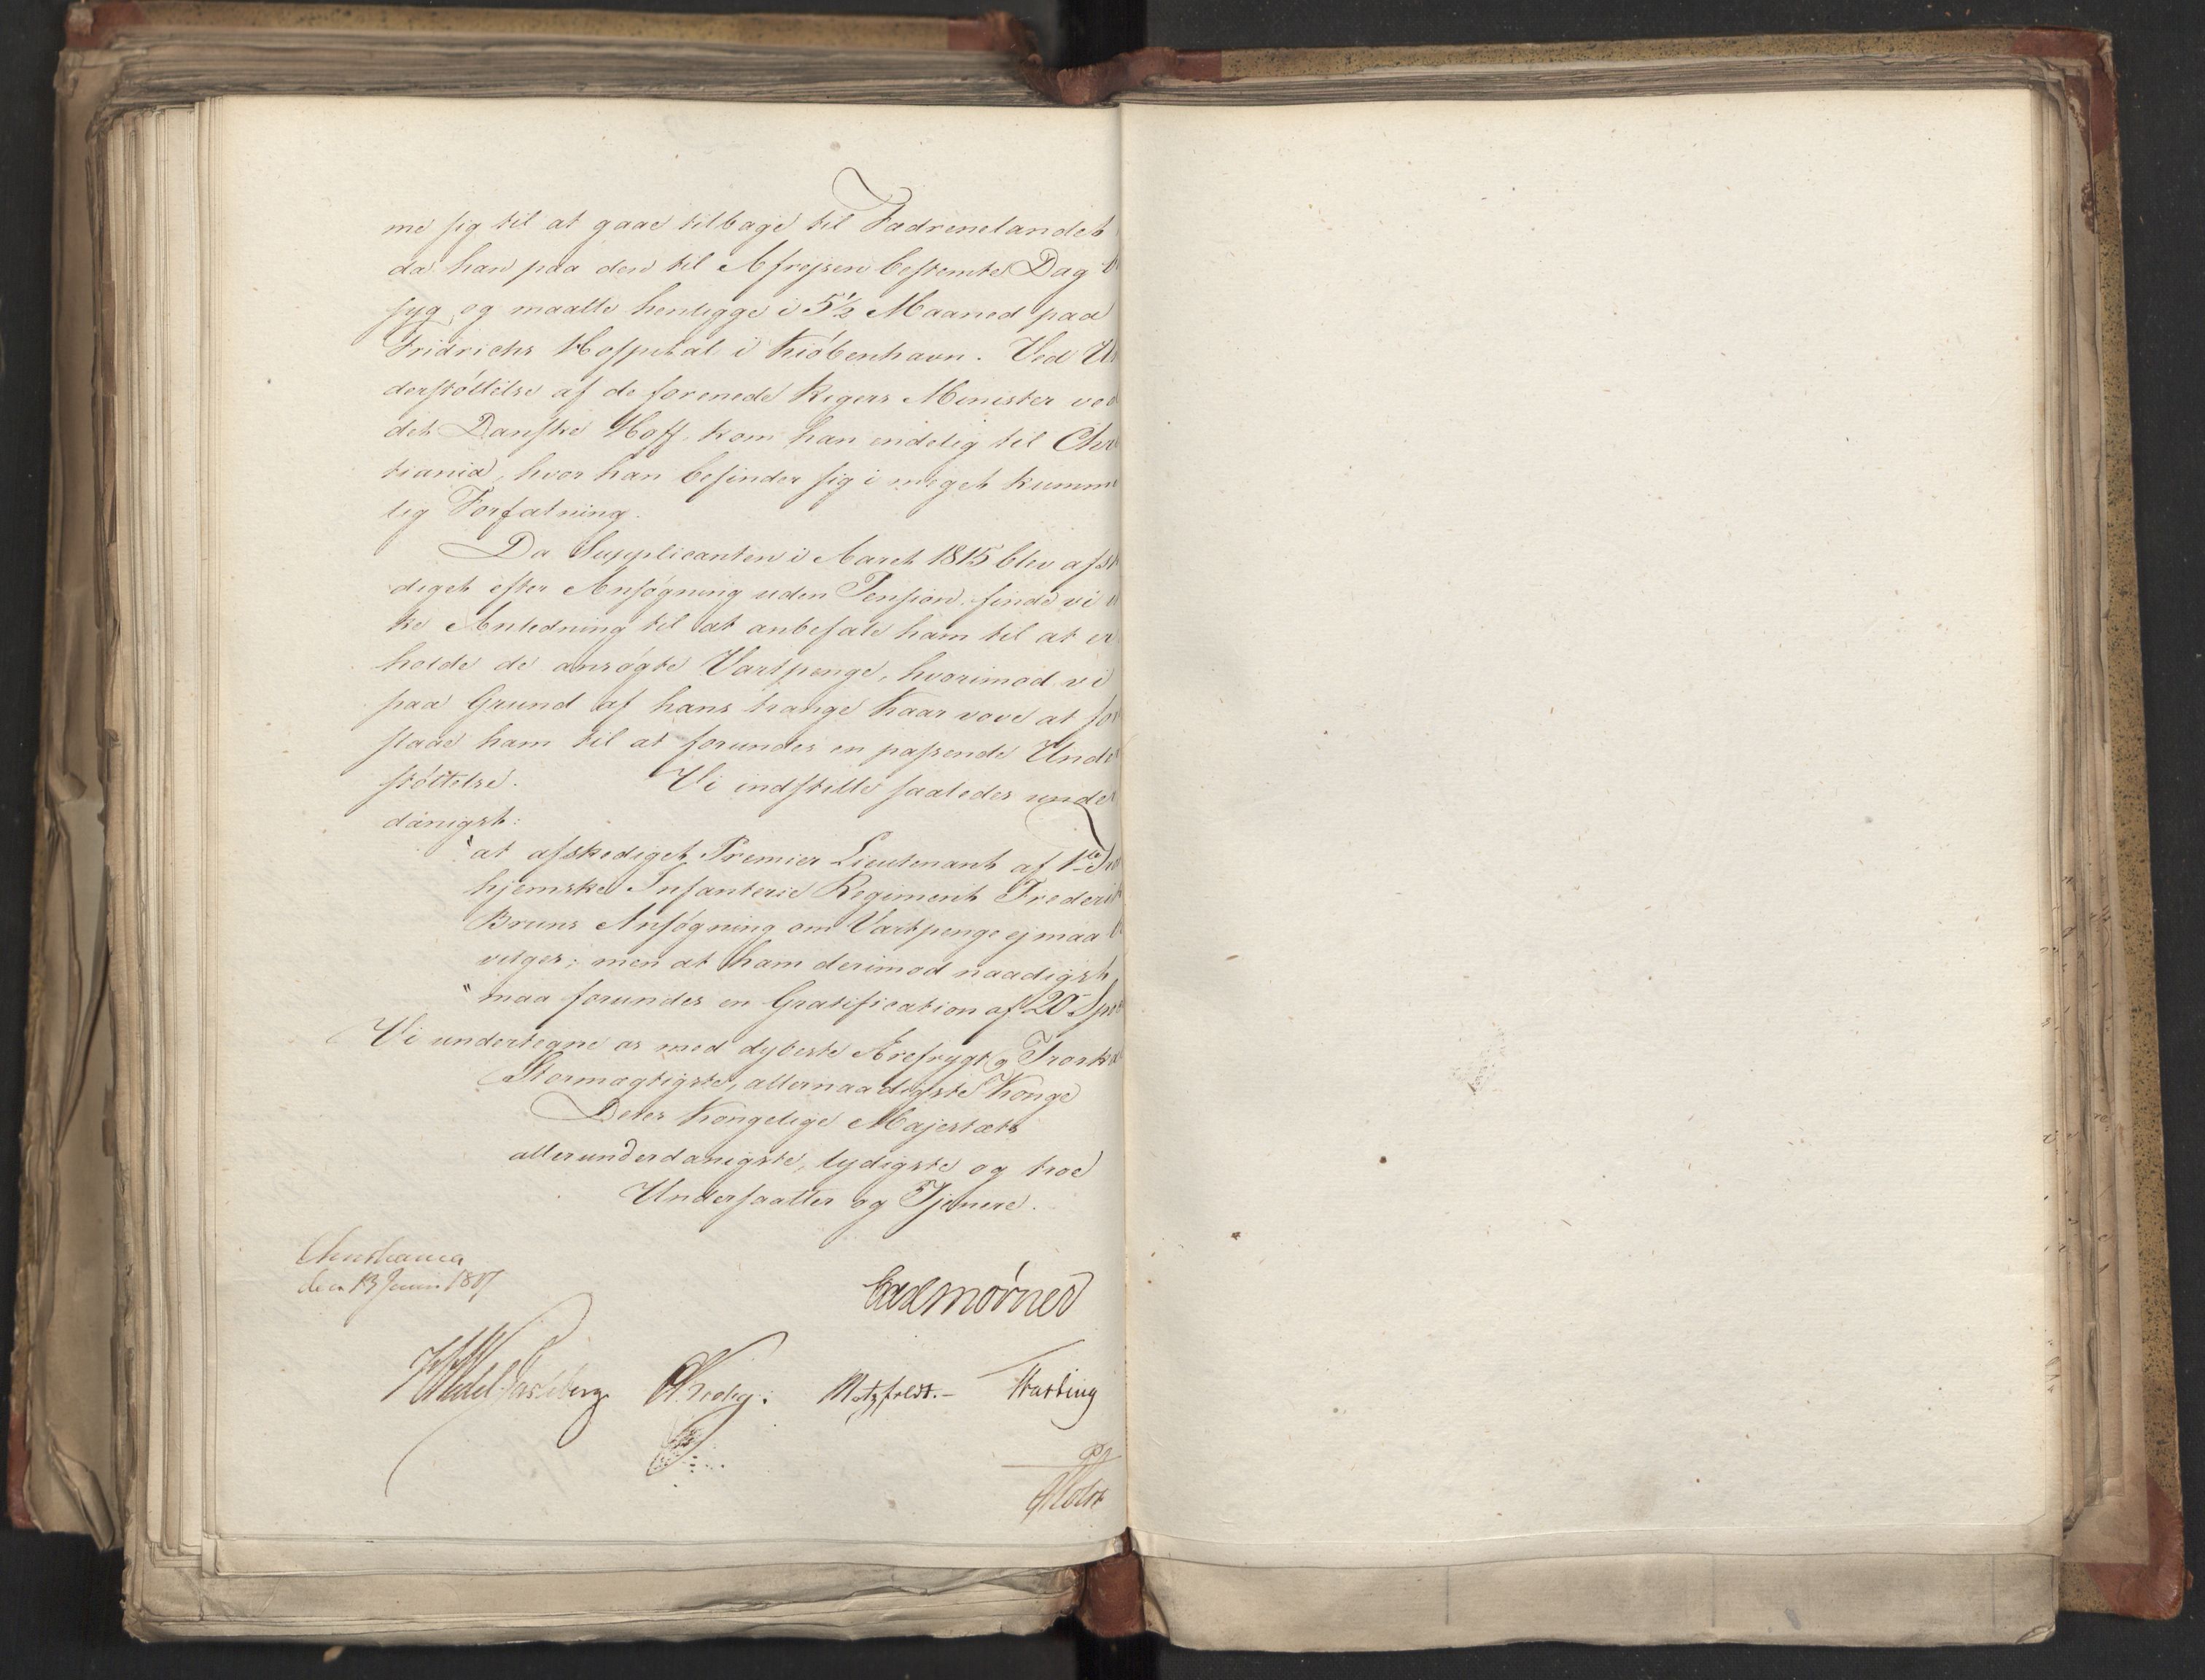 me sig til at gaae tilbage til Fædrenelandet
da han paa den til Afrejsen bestemte Dag b
syg og maatte henligge i 5½ Maaned paa
Fridrichs Hospital i Kiöbenhavn. Ved Un
derstöttelse af de forenede Rigers Minister ved
det Danske Hoff kom han endelig til Chri
tiania, hvor han befinder sig i meget kumme
lig Forfatning.
Da Supplicanten i Aaret 1815 blev afske
diget efter Ansögning uden Pension, finde vi i
ke Anledning til at anbefale ham til at er
holde de ansögte Vartpenge, hvorimod vi
paa Grund af hans trange Kaar vove at for
slaae ham til at forundes en passende Under
stöttelse. Vi indstille saaledes under
danigst:
"at afskediget Premier Lieutenant af 1ste Tro
hjemske Infanterie Regiment Frederik
Bruns Ansögning om Vartpenge ej maa b
vilges; men at ham derimod naadigst
"maa forundes en Gratification af 20 Spe
Vi undertegne os med dybeste Ærefrygt og Troska
Stormægtigste, allernaadigste Konge
Deres Kongelige Majestæts
allerunderdanigste, lydigste og troe
Undersaatter og Tjenere.
Christiania
den 13 Junii 1817
Carl Mörner
HWedel Jarlsberg Krebs. Motzfeldt.- Hasting
Holst